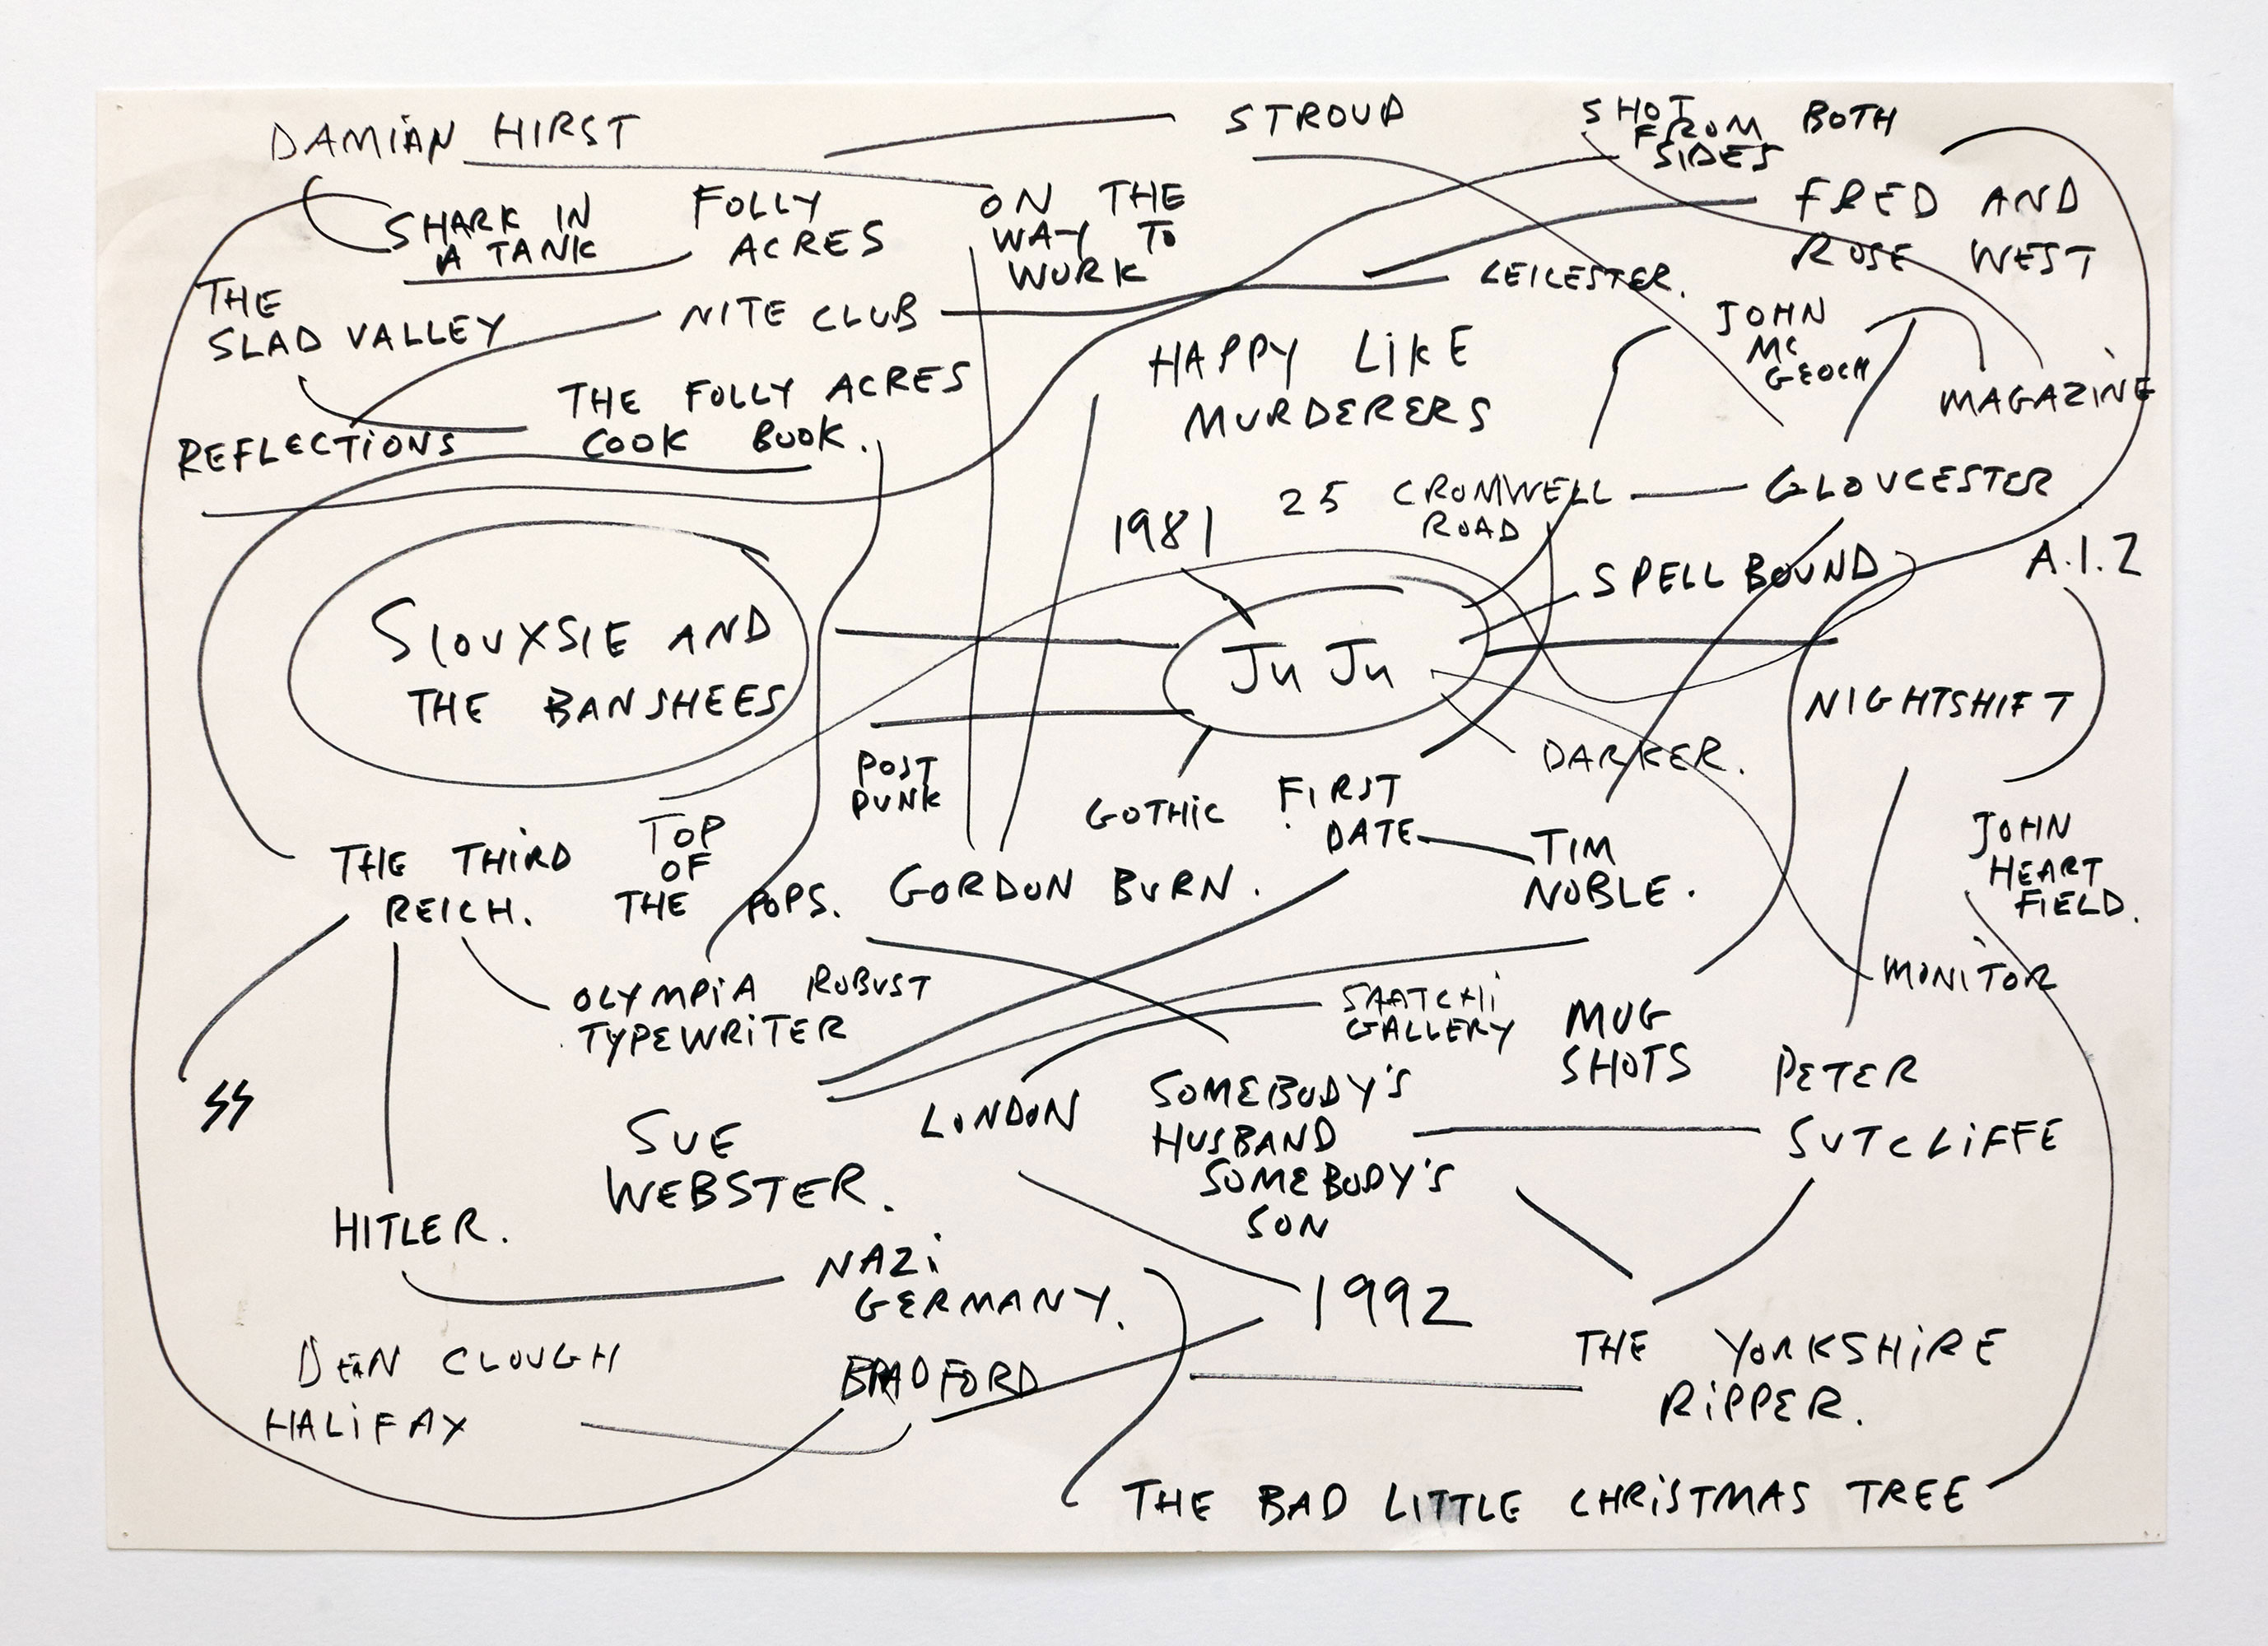 DAMIAN HIRST
STROUD
SHOT BOTH
FROM
SIDES
SHARK IN
A TANK
FOLLY
ACRES
ON THE
WAY TO
WORK
FRED AND
ROSE WEST
LEICESTER.
THE
SLAD VALLEY
NITE CLUB
HAPPY LIKE
MURDERERS
JOHN
MC
GEOCH
MAGAZINE
REFLECTIONS
THE FOLLY ACRES
COOK BOOK.
1981
25 CROMWELL
ROAD
GLOUCESTER
SPELLBOUND
A.I.Z
SIOUXSIE AND
THE BANSHEES
JU JU
NIGHTSHIFT
POST
PUNK
GOTHIC
FIRST
DATE
DARKER.
TIM
NOBLE.
JOHN
HEART
FIELD.
THE THIRD
REICH.
TOP
OF
THE POPS.
GORDON BURN.
OLYMPIA ROBUST
TYPEWRITER
SAATCHI
GALLERY
MUG
SHOTS
MONITOR
SS
SUE
WEBSTER.
LONDON
SOMEBODY'S
HUSBAND
SOMEBODY'S
SON
PETER
SUTCLIFFE
HITLER.
NAZI
GERMANY.
1992
DEAN CLOUGH
HALIFAX
BRADFORD
THE YORKSHIRE
RIPPER.
THE BAD LITTLE CHRISTMAS TREE